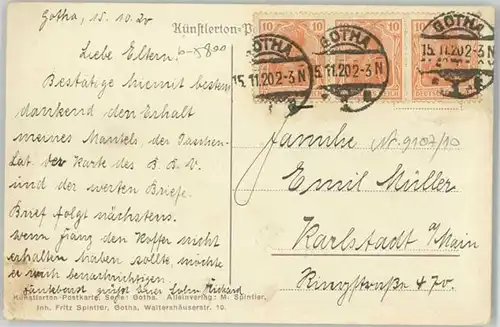 Gotha, 15. 10. 20
Künstlerton-P
Liebe Eltern!
Bestätige hiemit bestens
dankend den Erhalt
meines Mantels, der
der Karte des B. B. V.
und der werten Briefe.
Brief folgt nächstens.
Wenn den Koffer nicht
erhalten haben sollte, möchte
er mich benachrichtigen.
Dankbarst grüßt Euer Sohn Richard
Künstlerton-Postkarte, Serie: Gotha. Alleinverlag: M. Spintler,
Inh. Fritz Spintler, Gotha, Waltershäuserstr. 10.
10 10 10
GOTHA GOTHA GOTHA
15.11.20 2-3 N 15.11.20 2-3 N 15.11.20 2-3 N
Familie
Nr. 9107/10
Emil Müller
Karlstadt a/Main
Ringstraße 470.